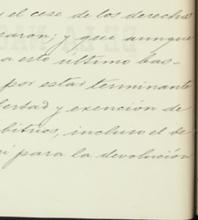 y el cese de los derechos
caron; y que aunque
a este ultimo bas-
por estar terminante
libertad y exención de
bitrios, incluso el de
para la devolución